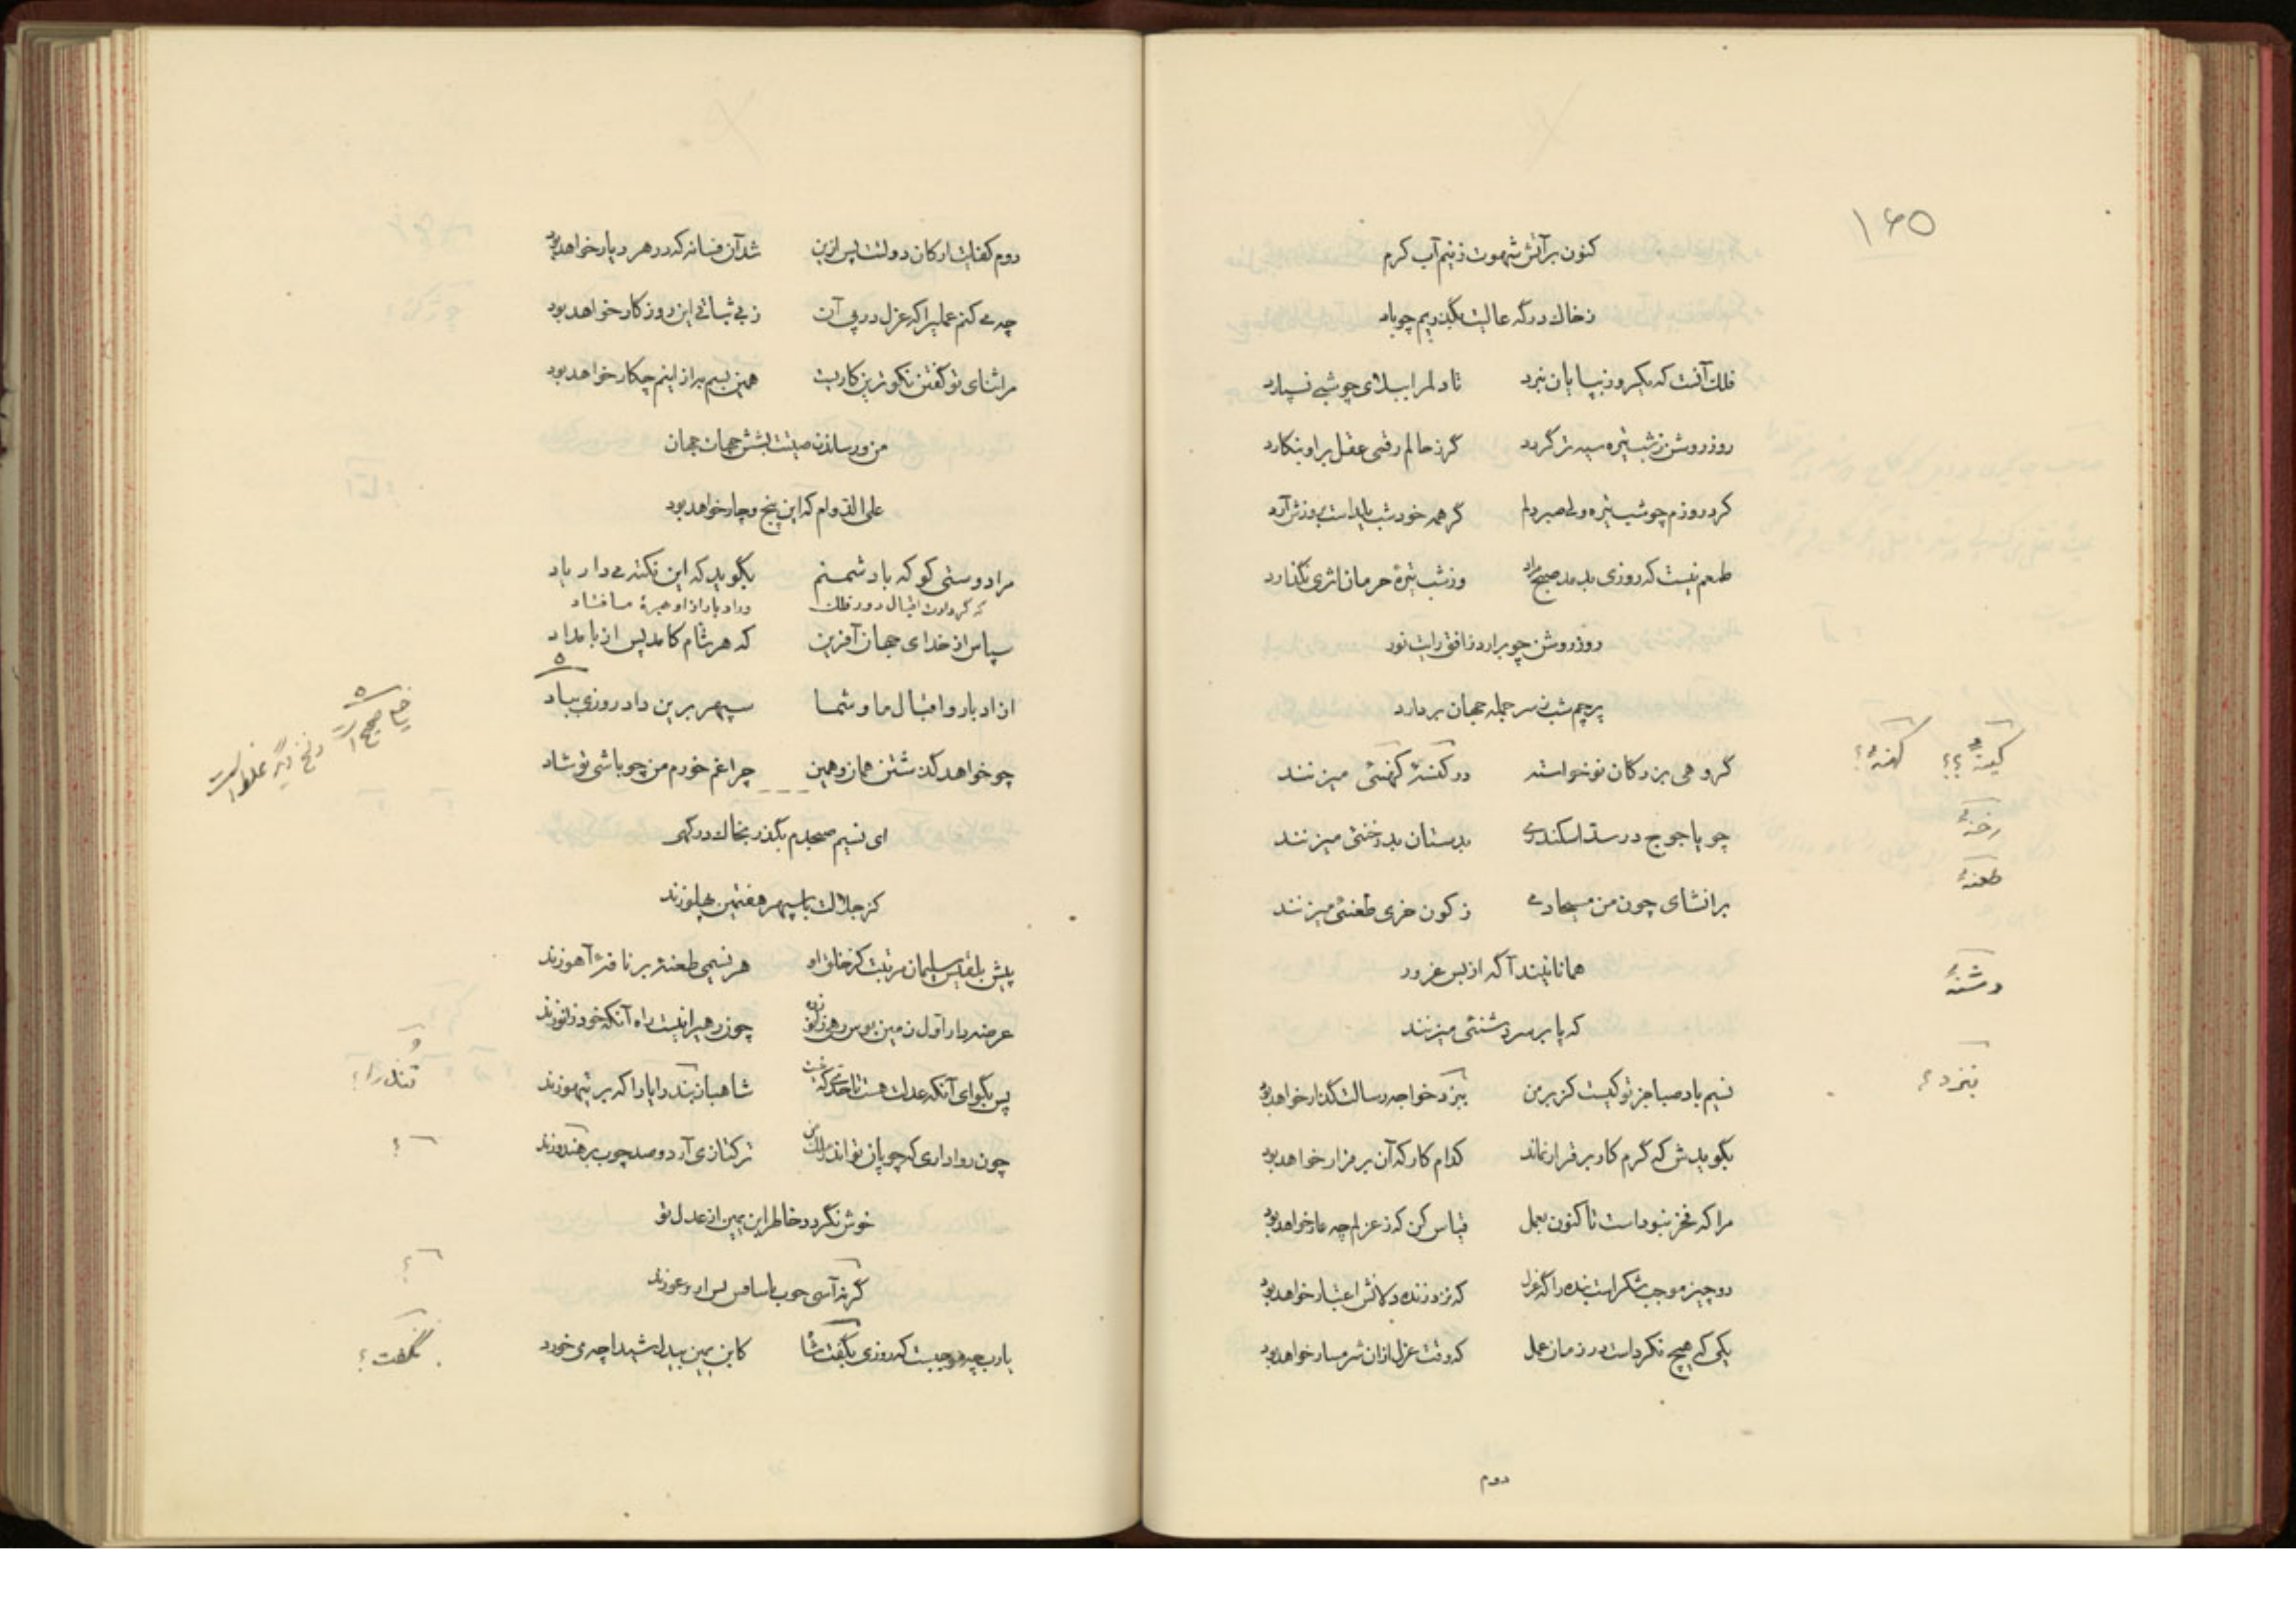 ۱۶۵
کنون بر آتش شهوت زنیم آب کرم
ز خاک درگه عالیت بگذریم چو باد
فلک آنست که یکروز بپایان نبرد تا دلم را ببلای چو شبی نسپارد
روز روشن ز شب تیره سیه‌تر گردد گر ز حالم رقمی عقل بر او بنگارد
کرد روزم چو شب تیره ولی صبر دلم گر همه خود شب یلداست بروزش آرد
طمعم نیست که روزی بدمد صبح مراد وز شب تیرهٔ حرمان اثری نگذارد
روز روشن چو برارد ز افق رایت نور
پرچم شب ز سر جمله جهان بردارد
گروهی بزرگان نوخواسته در کهنهٔ میزنند
کینهٔ ؟؟ کهنهٔ ؟
چو یاجوج در سد اسکندری بدستان بد رخنهٔ میزنند
رخنهٔ
بر انشای چون من مسیحادمی ز کون خری طعنهٔ میزنند
طعنهٔ
همانا نیند آگه از بس غرور
دشنهٔ
که پا بر سر دشنهٔ میزنند
نسیم باد صبا جز تو کیست کز بر من بنزد خواجه رسالت گذار خواهد بود
بنزد ؟
بگویدش که گرم کار برقرار نماند کدام کار که آن برقرار خواهد بود
مرا که فخر نبوداست تا کنون بعمل قیاس کن که ز عزلم چه عار خواهد بود
دو چیز موجب شکر است بنده را گه عزل که نزد زنده دلانش اعتبار خواهد بود
یکی که هیچ نکرداست در زمان عمل که وقت عزل ازان شرمسار خواهد بود
دوم
دوم کفایت ارکان دولت پس ازین شد آن فسانه که در هر دیار خواهد بود
چه می کنم عملیرا که عزل در پی آن ز بی ثباتی این روزگار خواهد بود
مرا ثنای تو گفتن نکوترین کاریست همین بسم بر ازینم چکار خواهد بود
من و رساندن صیتت بشش جهات جهان
علی الدوام که این پنج و چار خواهد بود
مرا دوستی کو که با دشمنم بگوید که این نکته می دار یاد
که گر دولت اقبال دور فلک
سپاس از خدای جهان آفرین که هر شام کامد پس از بامداد
از ادبار و اقبال ما و شما سپهر برین داد روزی بباد
صحیح است و نسخ دیگر غلط است
چو خواهد گذشتن همان و همین چرا غم خورم من چو باشی تو شاد
ای نسیم صبحدم بگذر بخاک درگهی
کز جلالت با سپهر هفتمین پهلو زند
پیش بلقیس سلیمان مرتبت کز خلق او هر نسیمی طعنه بر نافهٔ آهو زند
عرضه دار اول زمین بوس رهی زانو زده چون رهیرا نیست راه آنکه خود زانو زند
پس بگوی آنکه عدلت هست تا حدی که شاهباز تند را یارا که بر تیهو زند
تند را ؟
چون رواداری که چوپان تو اندر ملک من ترکتازی آرد و صد چوب بر هندو زند
خوش نگردد خاطر ابن یمین از عدل تو
؟
یارب چه موجبست که روزی بگفت شا کابن یمین بیدل شیدا چه می خورد
نگفت ؟